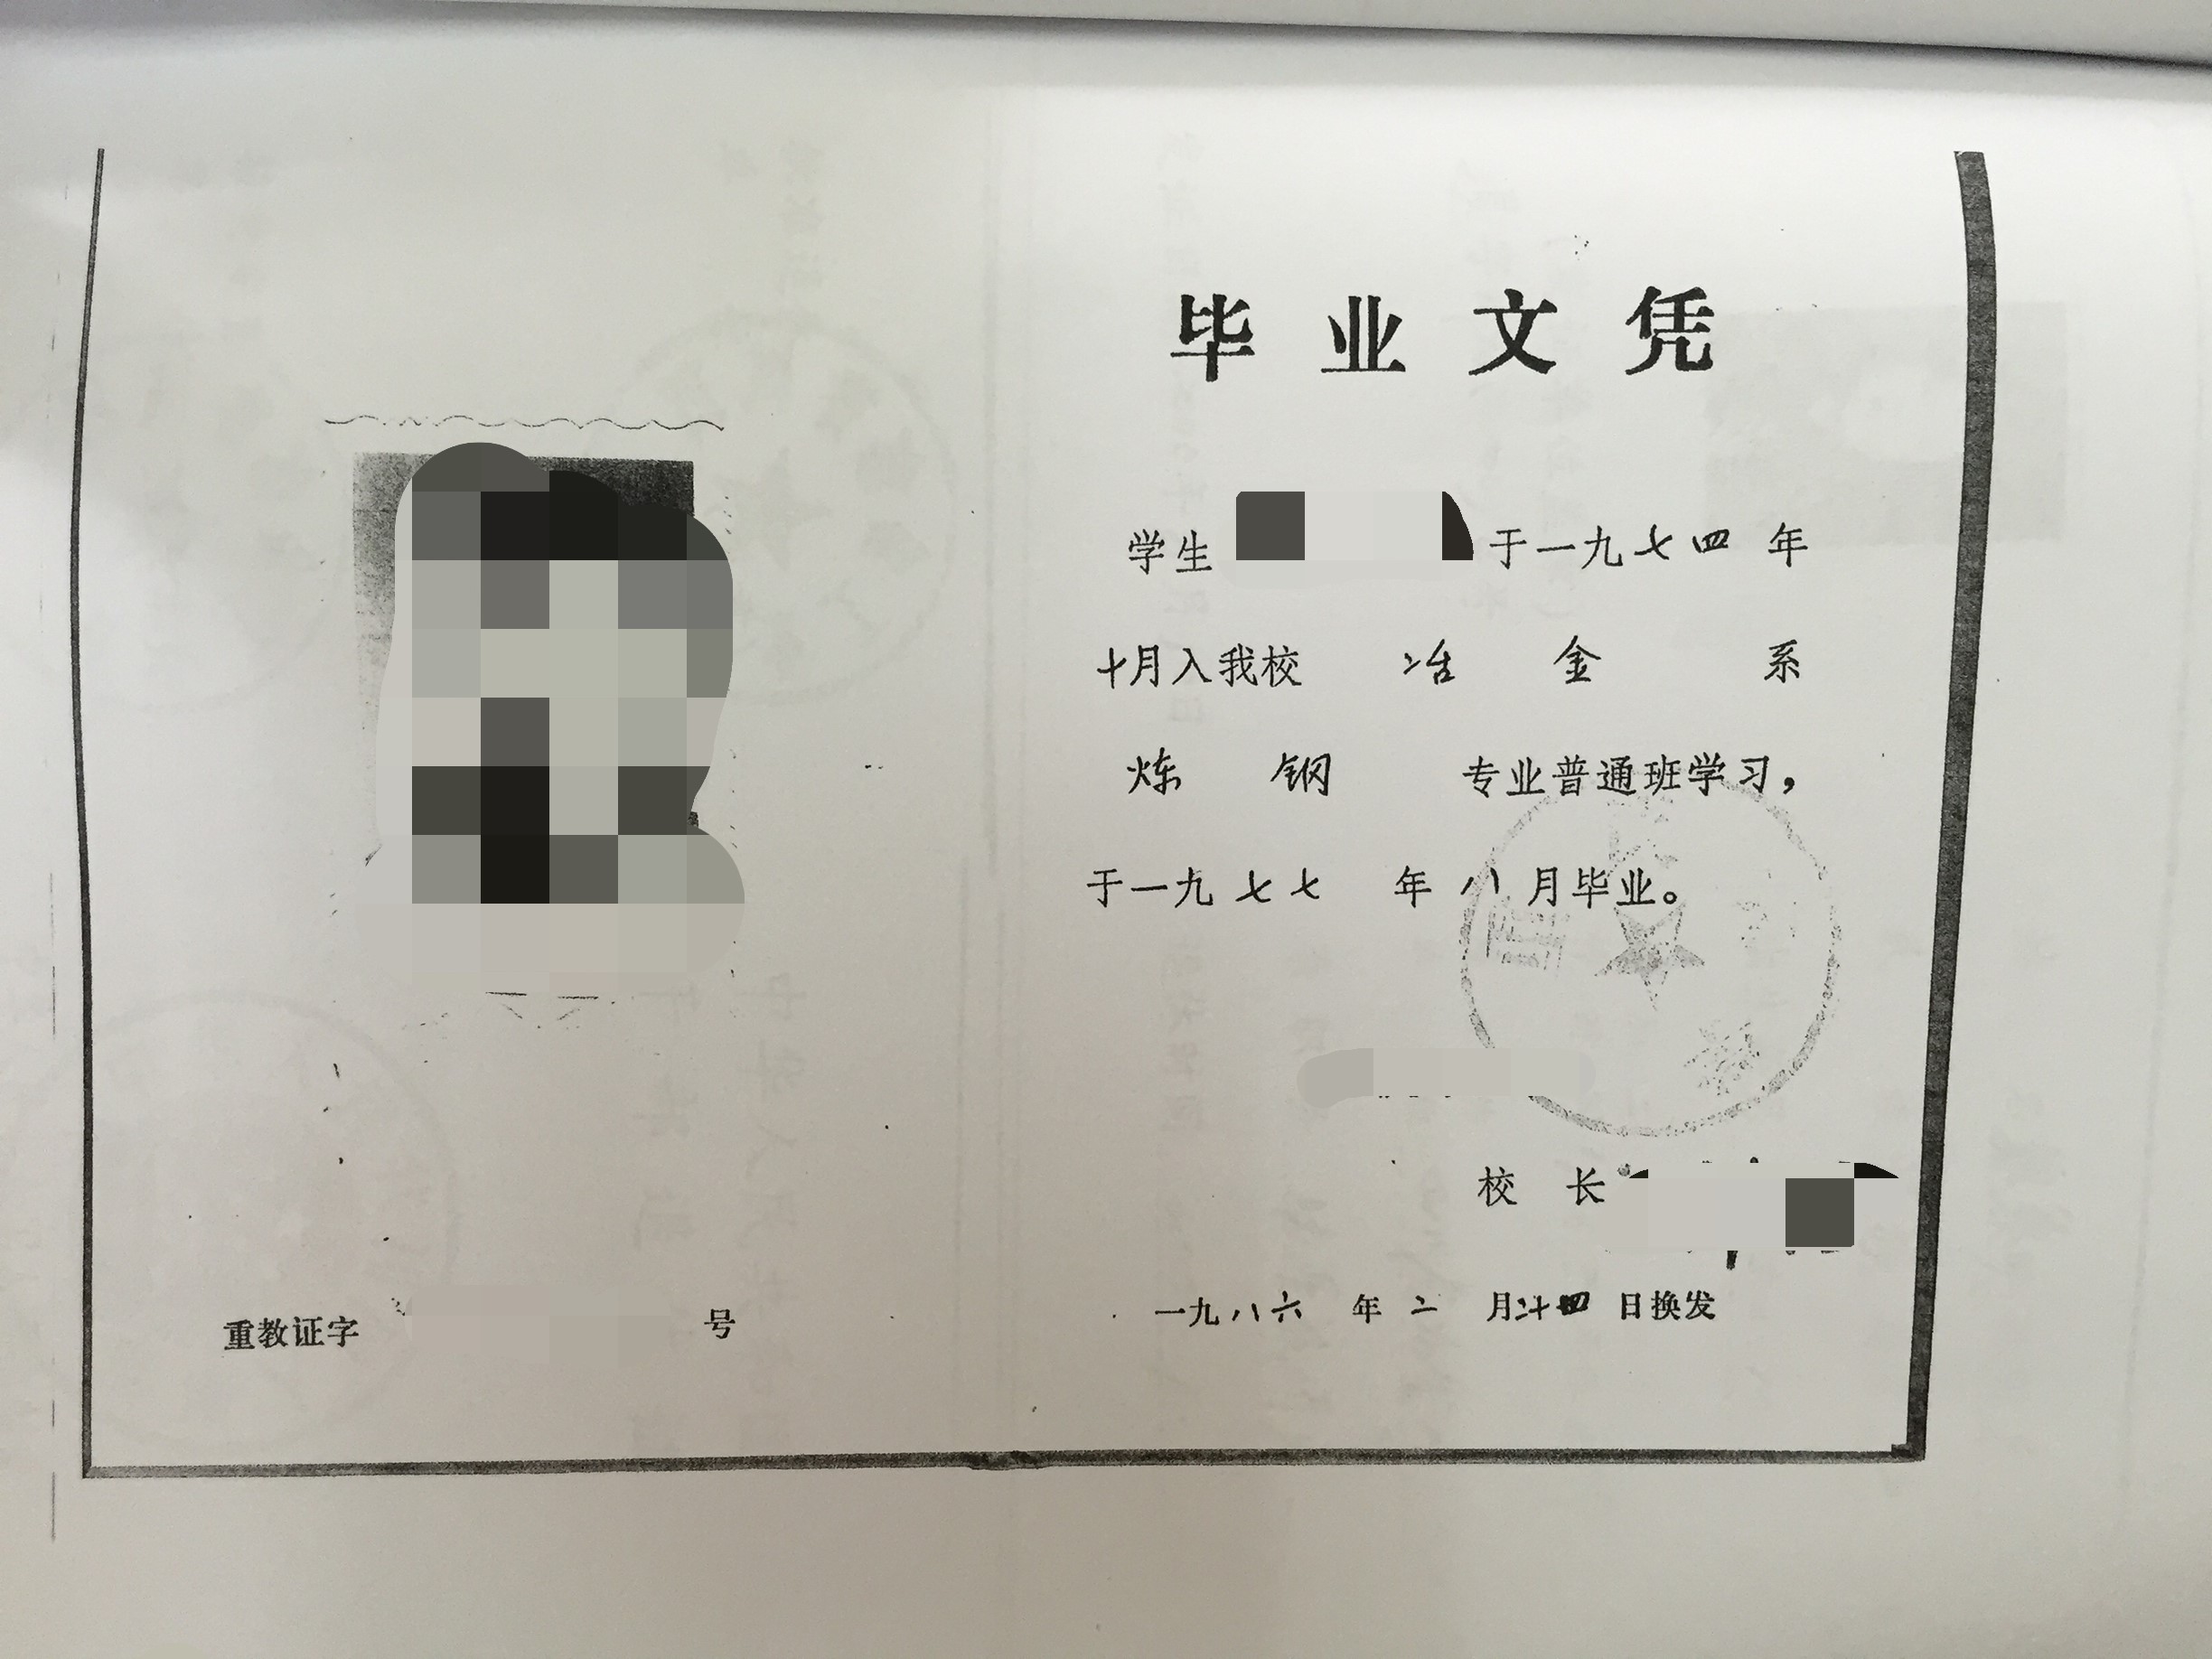 毕业文凭
学生 于一九七四年
十月入我校 冶金系
炼钢 专业普通班学习，
于一九七七年八月毕业。
校长
重教证字 号
一九八六年二月廿四日换发